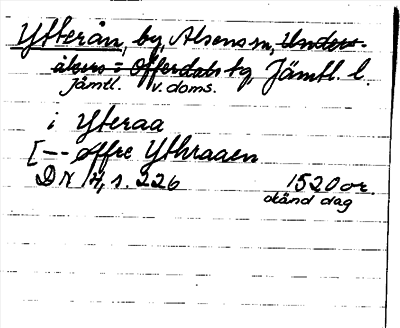 Ytterån, by, Alsens sn, Unders-
åkers = Offerdals tg, Jämtl. l.
Jämtl. v. doms.
i Yteraa
[-- øffre Ythraaen
DN 14, s. 226 1520 or.
okänd dag